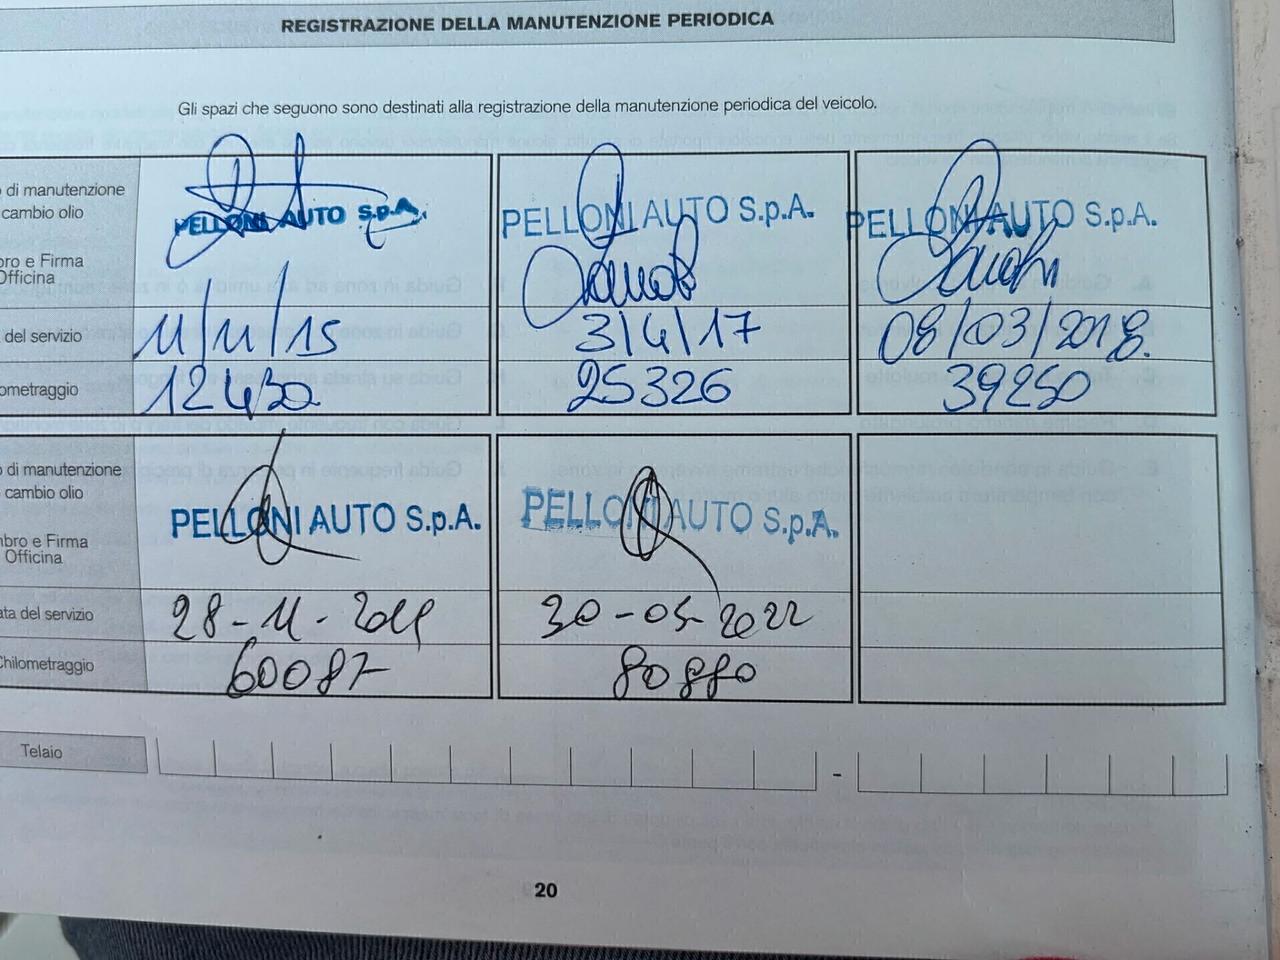 REGISTRAZIONE DELLA MANUTENZIONE PERIODICA
Gli spazi che seguono sono destinati alla registrazione della manutenzione periodica del veicolo.
di manutenzione
cambio olio
bro e Firma
Officina
PELLONI AUTO S.p.A.
PELLONI AUTO S.p.A.
PELLONI AUTO S.p.A.
del servizio
11/11/15
3/4/17
08/03/2018.
ometraggio
12430
25326
39250
di manutenzione
cambio olio
mbro e Firma
Officina
PELLONI AUTO S.p.A.
PELLONI AUTO S.p.A.
ata del servizio
28-11-2019
30-05-2022
Chilometraggio
60087
80880
Telaio
-
20